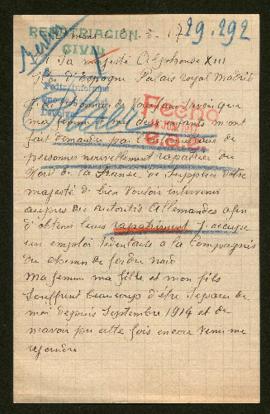 REPATRIACION
CIVIL
29.292
A sa majesté Alphonse XIII
Roi d'Espagne Palais royal Madrid
Fecho
que
ma femme mes enfants m'ont
fait demander par
personnes nouvellement rapatriées du
Nord de la France, de supplier Votre
majesté de bien vouloir intervenir
auprès des autorités Allemandes afin
d'obtenir leurs rapatriement j'occupe
un emploi sédentaire a la Compagnie
du chemin de fer du nord
Ma femme ma fille et mon fils
souffrent beaucoup d'être séparés de
moi depuis Septembre 1914 et de
n'avoir pu cette fois encore venir me
rejoindre